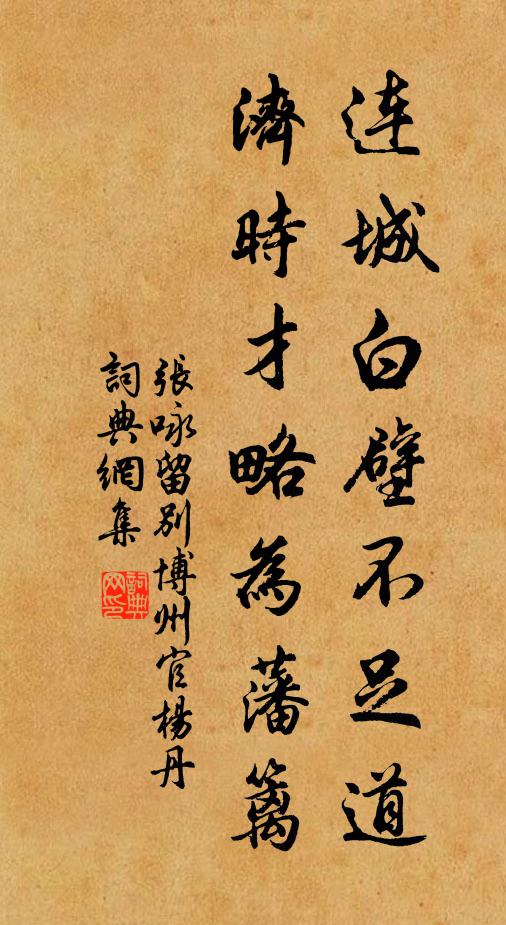 連城白璧不足道
濟時才略為藩籬
張咏留別博州官楊丹
詞典網集
詞典
网印